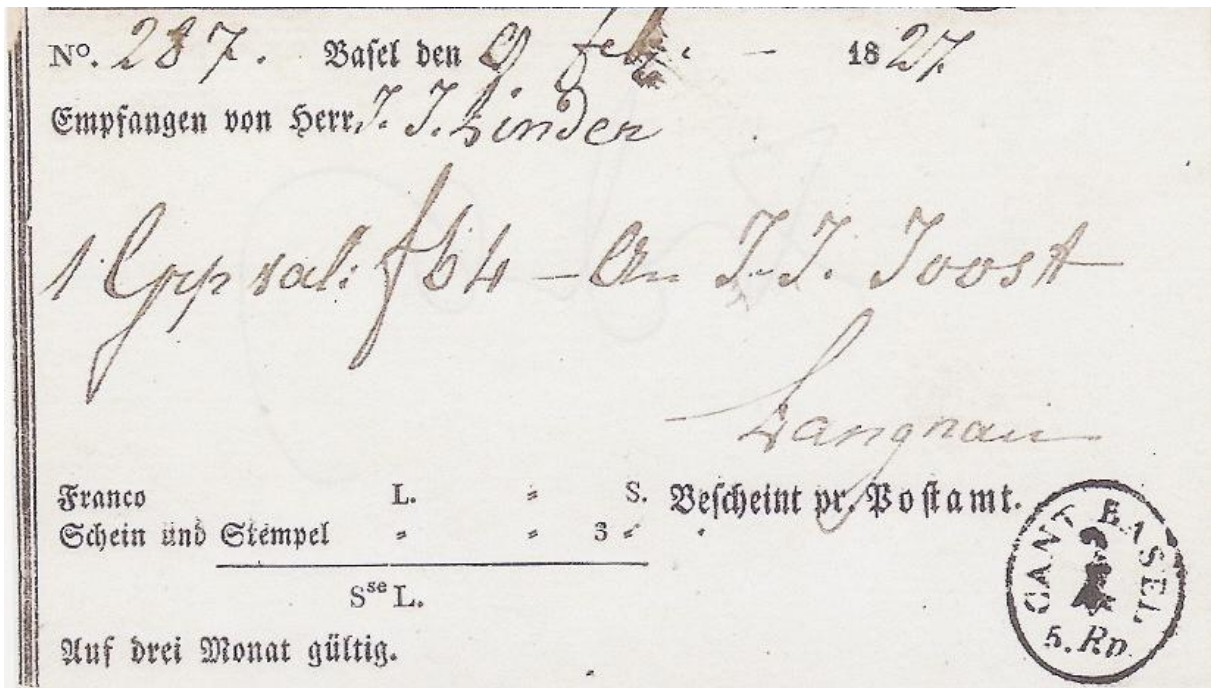 No. 287. Basel den 9 febr: – 1827.
Empfangen von Herr J. J. Linder
1 Grp val: f 64 – An J. J. Joost
Langnau
Franco L. " S. Bescheint pr. Postamt.
Schein und Stempel " " 3 "
Sse L.
Auf drei Monat gültig.
CANT BASEL
5. Rp.